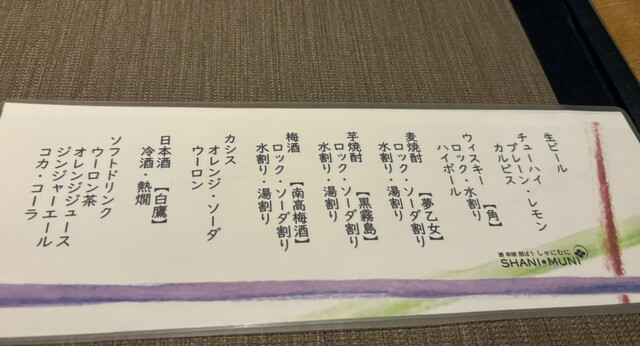 生ビール
チューハイ
プレーン・レモン
カルピス
ウィスキー【角】
ロック・水割り
ハイボール
麦焼酎【夢乙女】
ロック・ソーダ割り
水割り・湯割り
芋焼酎【黒霧島】
ロック・ソーダ割り
水割り・湯割り
梅酒【南高梅酒】
ロック・ソーダ割り
水割り・湯割り
カシス
オレンジ・ソーダ
ウーロン
日本酒【白鷹】
冷酒・熱燗
ソフトドリンク
ウーロン茶
オレンジジュース
ジンジャーエール
コカ・コーラ
しゃにむに
SHANI★MUNI